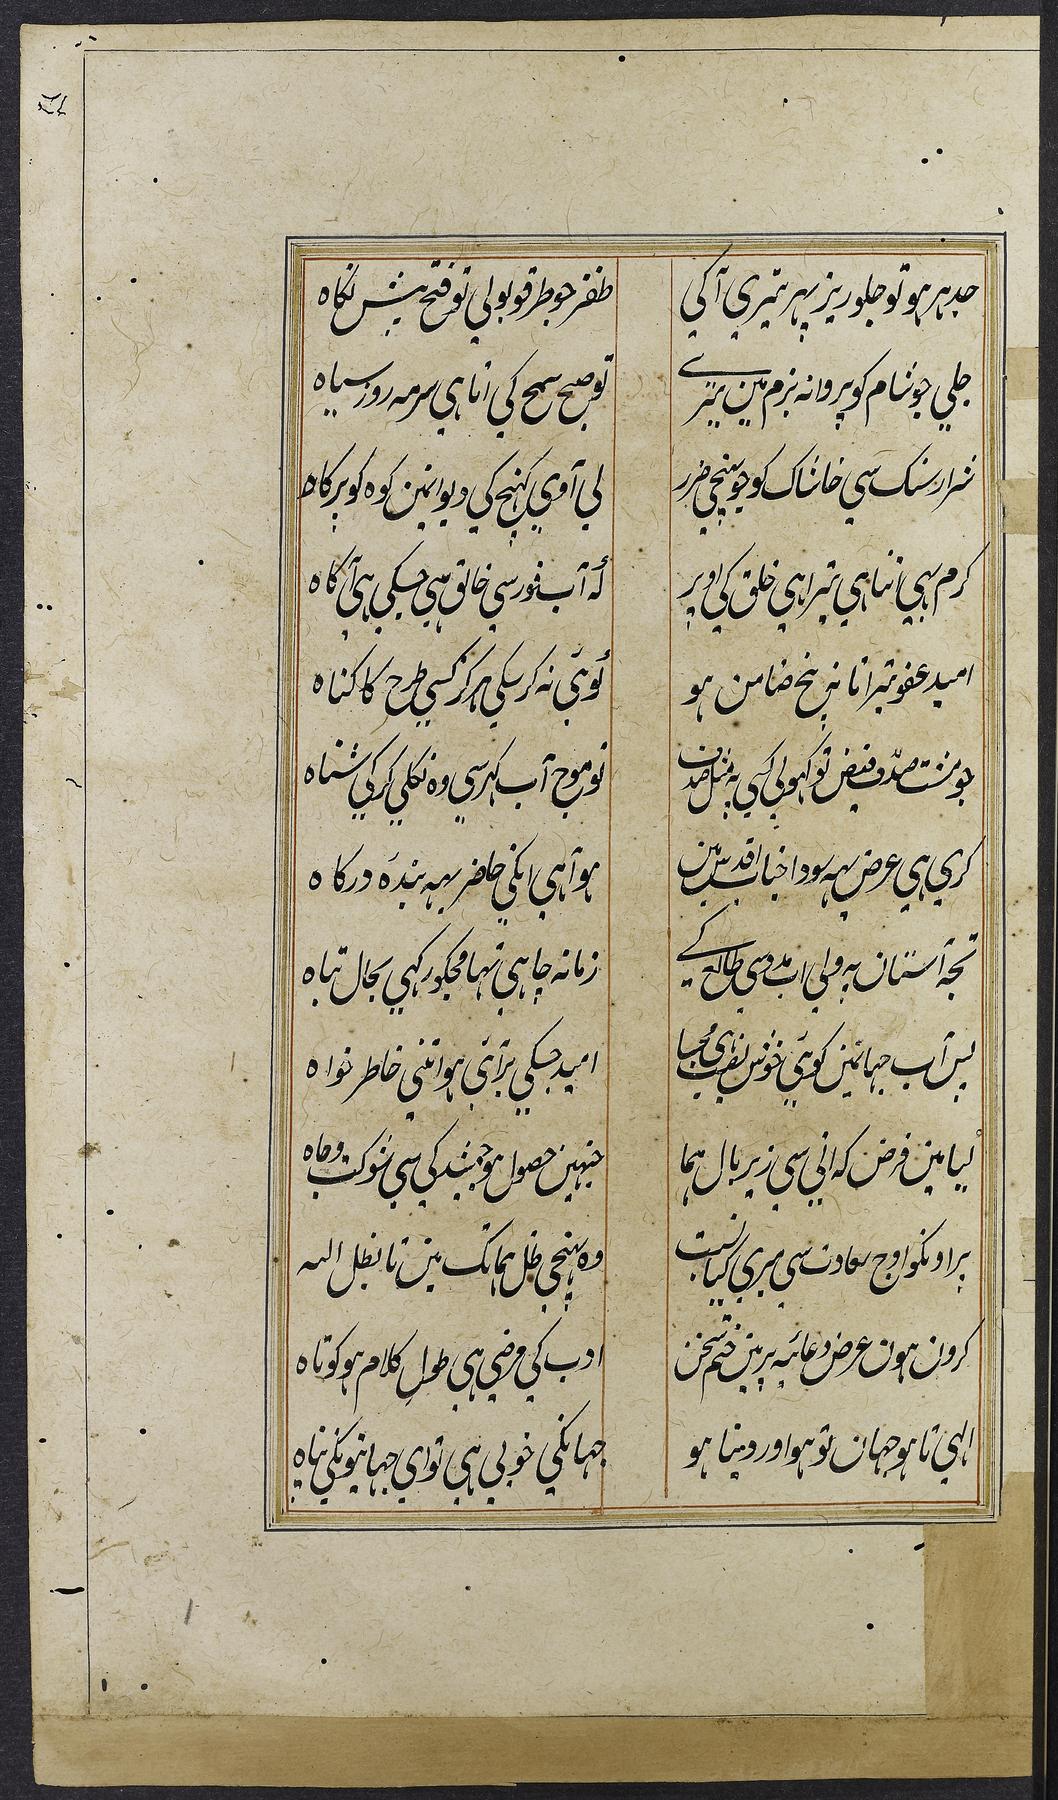 جدہر ہو تو جلوریز پہر تیری آکی
ظفر جو طرقو بولی تو فتح پیش نکاہ
جلی جو شام کو پروانہ بزم مین تیرے
تو صبح سمج کی اتا ہی سرمہ روز سیاہ
شرار سنک سی خاشاک کو جو پہنچی ضرر
لی آوی کہنچ کی دیوانمین کوہ کو پر کاہ
کرم بہی اتنا ہی تیرا ہی خلق کی اوپر
کہ آب فور سی خالق ہی جسکی ہی آکاہ
امید عفو تیرا تا نہ بنح ضامن ہو
کوئی نہ کر سکی ہرکز کسی طرح کا کناہ
جو مشت صدف فیض تو کہولی کسی پہ مثل صدف
تو موج آب کہر سی وہ نکلی کر کی شناہ
کری ہی عرض یہہ سودا جناب اقدس مین
ہوا ہی انکی حاضر یہہ بندہ درکاہ
تجہ آستان پہ ولی اب مدد سی طالع کے
زمانہ چاہی تہا مجکو رکہی بحال تباہ
پس آب جہانمین کوئی خوش نصیب ہی مجسا
امید جسکی بر آئی ہو اتنی خاطر خواہ
کیا مین فرض کہ انی سی زیر بال ہما
جنہین حصول ہو جمشید کی سی شوکت و جاہ
پر اونکو اوج سعادت سی میری کیا نسبت
وہ پہنچی ظل ہما تک مین تا بظل الہ
کرون ہون عرض دعائیہ پر مین ختم سخن
ادب کی مرضی ہی طول کلام ہو کوتاہ
الہی تا ہو جہان تو ہو اور دنیا ہو
جہانکی خوبی ہی تو ای جہانیونکی پناہ